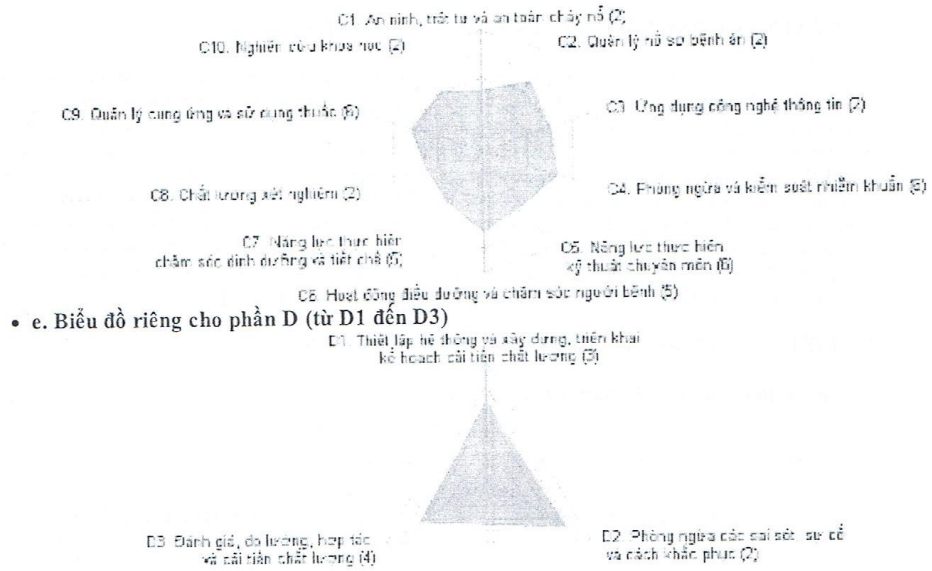 C1. An ninh, trật tự và an toàn cháy nổ (2)
C10. Nghiên cứu khoa học (2)
C2. Quản lý hồ sơ bệnh án (2)
C9. Quản lý cung ứng và sử dụng thuốc (6)
C3. Ứng dụng công nghệ thông tin (2)
C8. Chất lượng xét nghiệm (2)
C4. Phòng ngừa và kiểm soát nhiễm khuẩn (6)
C7. Năng lực thực hiện
chăm sóc dinh dưỡng và tiết chế (5)
C5. Năng lực thực hiện
kỹ thuật chuyên môn (5)
C6. Hoạt động điều dưỡng và chăm sóc người bệnh (5)
• e. Biểu đồ riêng cho phần D (từ D1 đến D3)
D1. Thiết lập hệ thống và xây dựng, triển khai
kế hoạch cải tiến chất lượng (3)
D3. Đánh giá, đo lường, hợp tác
và cải tiến chất lượng (4)
D2. Phòng ngừa các sai sót, sự cố
và cách khắc phục (2)